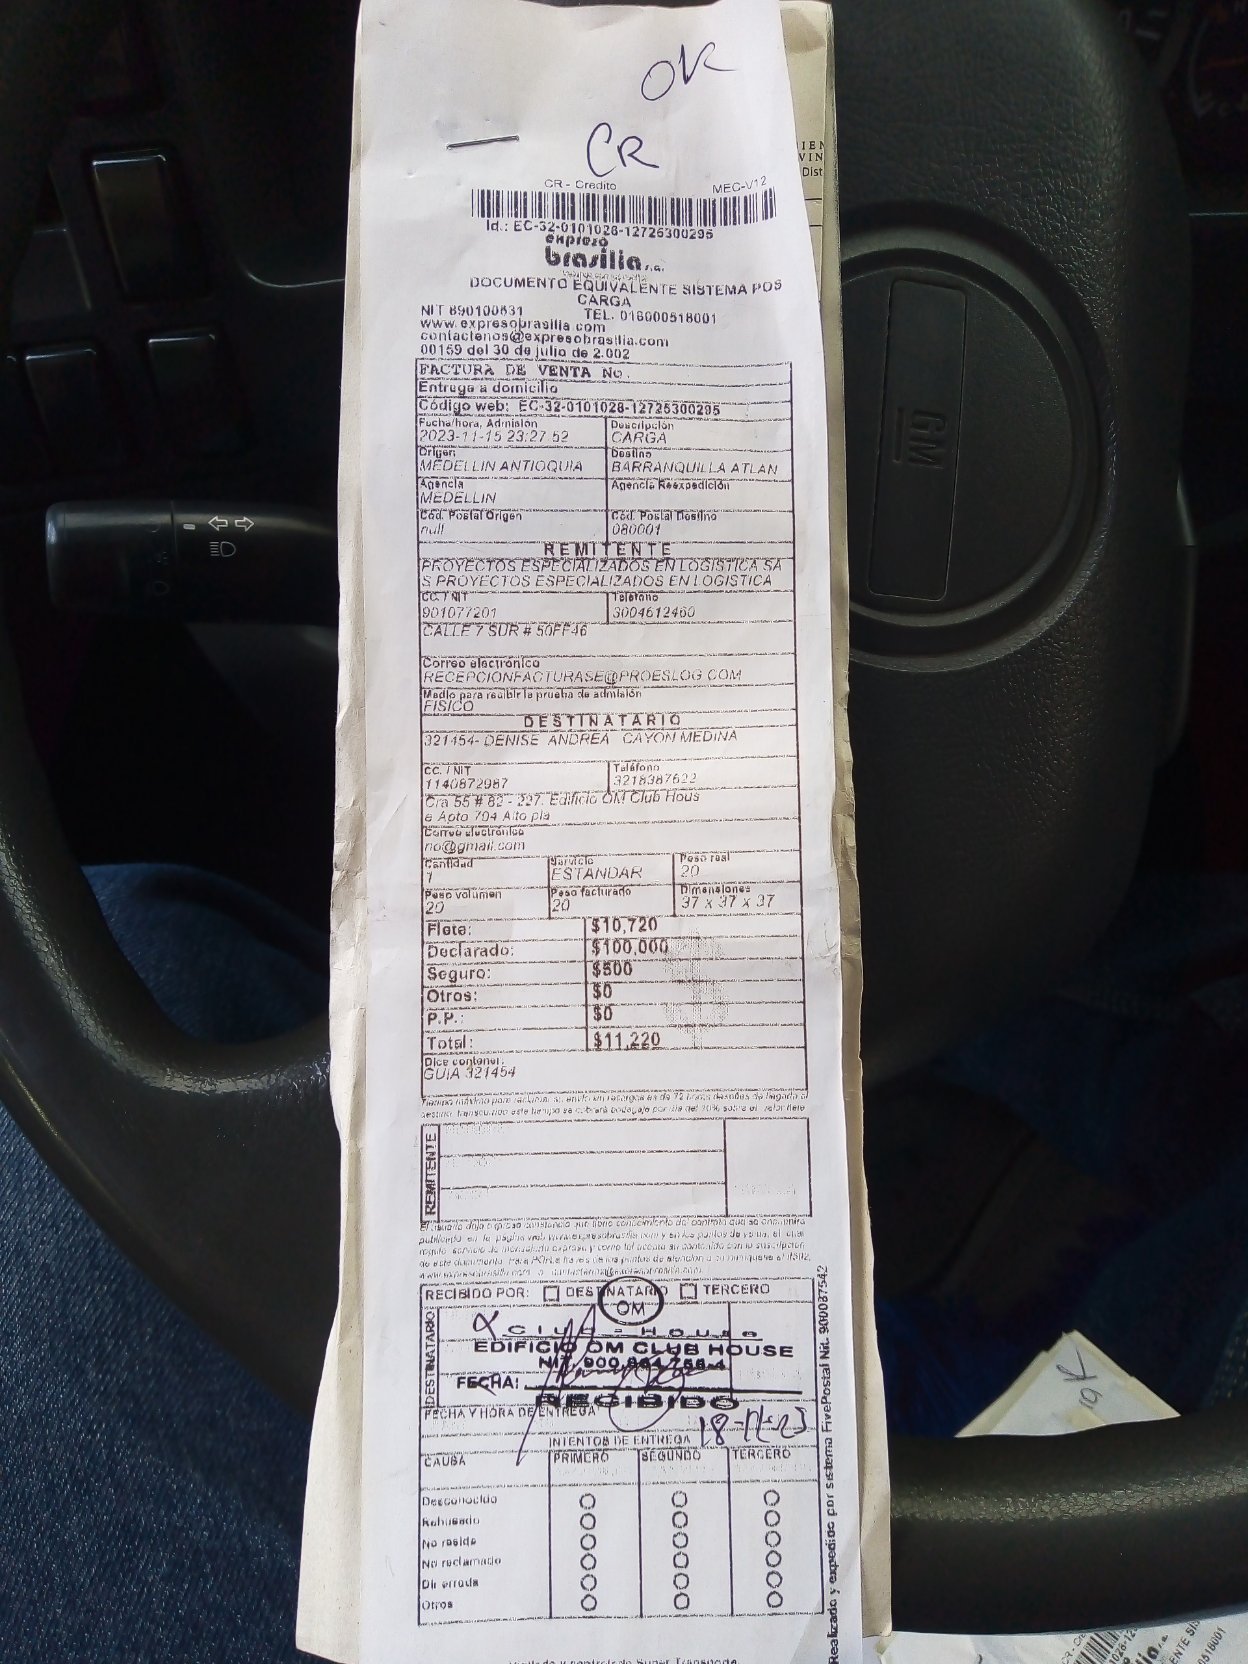 OK
CR
CR - Credito MEC-V12
Id.: EC-32-0101028-12726300295
expreso
brasilia s.a.
DOCUMENTO EQUIVALENTE SISTEMA POS
CARGA
NIT 890100531 TEL. 018000518001
www.expresobrasilia.com
contactenos@expresobrasilia.com
00159 del 30 de julio de 2.002
FACTURA DE VENTA No.
Entrega a domicilio
Código web: EC-32-0101028-12726300295
Fecha/hora, Admisión Descripción
2023-11-15 23:27:52 CARGA
Origen Destino
MEDELLIN ANTIOQUIA BARRANQUILLA ATLAN
Agencia Agencia Reexpedición
MEDELLIN
Cód. Postal Origen Cód. Postal Destino
null 080001
REMITENTE
PROYECTOS ESPECIALIZADOS EN LOGISTICA SA
S PROYECTOS ESPECIALIZADOS EN LOGISTICA
CC. / NIT Teléfono
901077201 3004612460
CALLE 7 SUR # 50FF46
Correo electrónico
RECEPCIONFACTURASE@PROESLOG.COM
Medio para recibir la prueba de admisión
FISICO
DESTINATARIO
321454- DENISE ANDREA CAYON MEDINA
CC. / NIT Teléfono
1140872987 3218387622
Cra 55 # 82 - 227. Edificio OM Club Hous
e Apto 704 Alto pla
Correo electrónico
no@gmail.com
Cantidad Servicio Peso real
1 ESTANDAR 20
Peso volumen Peso facturado Dimensiones
20 20 37 x 37 x 37
Flete: $10,720
Declarado: $100,000
Seguro: $500
Otros: $0
P.P.: $0
Total: $11,220
Dice contener:
GUIA 321454
Tiempo máximo para reclamar su envío sin recargos es de 72 horas después de llegada al
destino, transcurrido este tiempo se cobrará bodegaje por día del 10% sobre el valor flete
REMITENTE
RECIBIDO POR: DESTINATARIO TERCERO
DESTINATARIO
OM
Club - House
EDIFICIO OM CLUB HOUSE
NIT. 900.864.756-4
FECHA:
RECIBIDO
FECHA Y HORA DE ENTREGA
18-11-23
INTENTOS DE ENTREGA
CAUSA PRIMERO SEGUNDO TERCERO
Desconocido
Rehusado
No reside
No reclamado
Dir errada
Otros
Realizado y expedido por sistema FivePostal Nit. 900087542
GM